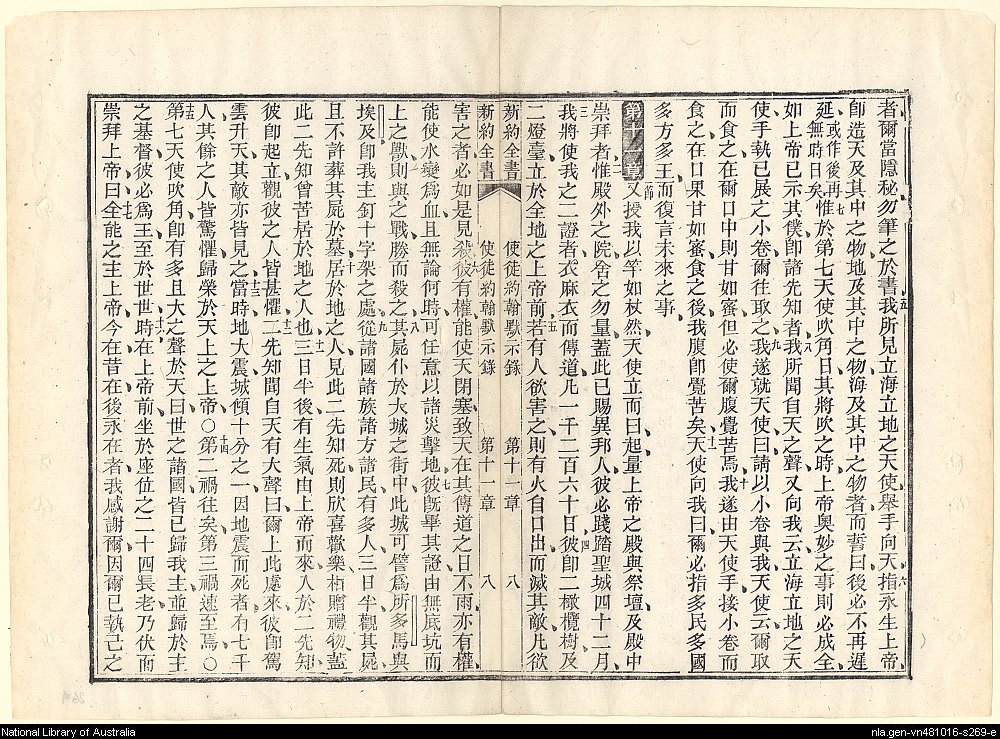 者爾當隱秘勿筆之於書五我所見立海立地之天使舉手向天六指永生上帝
卽造天及其中之物地及其中之物海及其中之物者而誓曰後必不再遲
延或作後再無時日矣七惟於第七天使吹角日其將吹之時上帝奧妙之事則必成全
如上帝已示其僕卽諸先知者八我所聞自天之聲又向我云立海立地之天
使手執已展之小卷爾往取之九我遂就天使曰請以小卷與我天使云爾取
而食之在爾口中則甘如蜜但必使爾腹覺苦焉十我遂由天使手接小卷而
食之在口果甘如蜜食之後我腹卽覺苦矣十一天使向我曰爾必指多民多國
多方多王而復言未來之事
第十一章一節又授我以竿如杖然天使立而曰起量上帝之殿與祭壇及殿中
崇拜者二惟殿外之院舍之勿量蓋此已賜異邦人彼必踐踏聖城四十二月
三我將使我之二證者衣麻衣而傳道凡一千二百六十日四彼卽二橄欖樹及
二燈臺立於全地之上帝前五若有人欲害之則有火自口出而滅其敵凡欲
新約全書 使徒約翰默示錄 第十一章 八
新約全書 使徒約翰默示錄 第十一章 八
害之者必如是見殺六彼有權能使天閉塞致天在其傳道之日不雨亦有權
能使水變爲血且無論何時可任意以諸災擊地七彼旣畢其證由無底坑而
上之獸則與之戰勝而殺之八其屍仆於大城之街中此城可譬爲所多馬與
埃及卽我主釘十字架之處九從諸國諸族諸方諸民有多人三日半觀其屍
且不許葬其屍於墓十居於地之人見此二先知死則欣喜歡樂相贈禮物蓋
此二先知曾苦居於地之人也十一三日半後有生氣由上帝而來入於二先知
彼卽起立觀彼之人皆甚懼十二二先知聞自天有大聲曰爾上此處來彼卽駕
雲升天其敵亦皆見之十三當時地大震城傾十分之一因地震而死者有七千
人其餘之人皆驚懼歸榮於天上之上帝○十四第二禍往矣第三禍速至焉○
十五第七天使吹角卽有多且大之聲於天曰世之諸國皆已歸我主並歸於主
之基督彼必爲王至於世世十六時在上帝前坐於座位之二十四長老乃伏而
崇拜上帝十七曰全能之主上帝今在昔在後永在者我感謝爾因爾已執己之
National Library of Australia
nla.gen-vn481016-s269-e